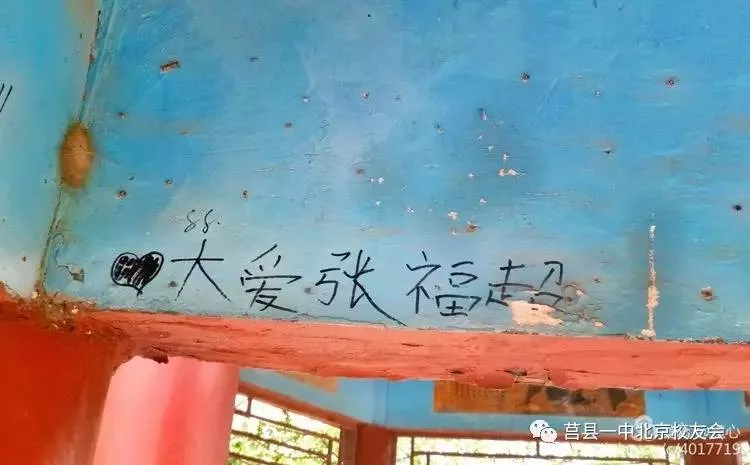 ss.
大爱张福超
莒县一中北京校友会
心
4017719